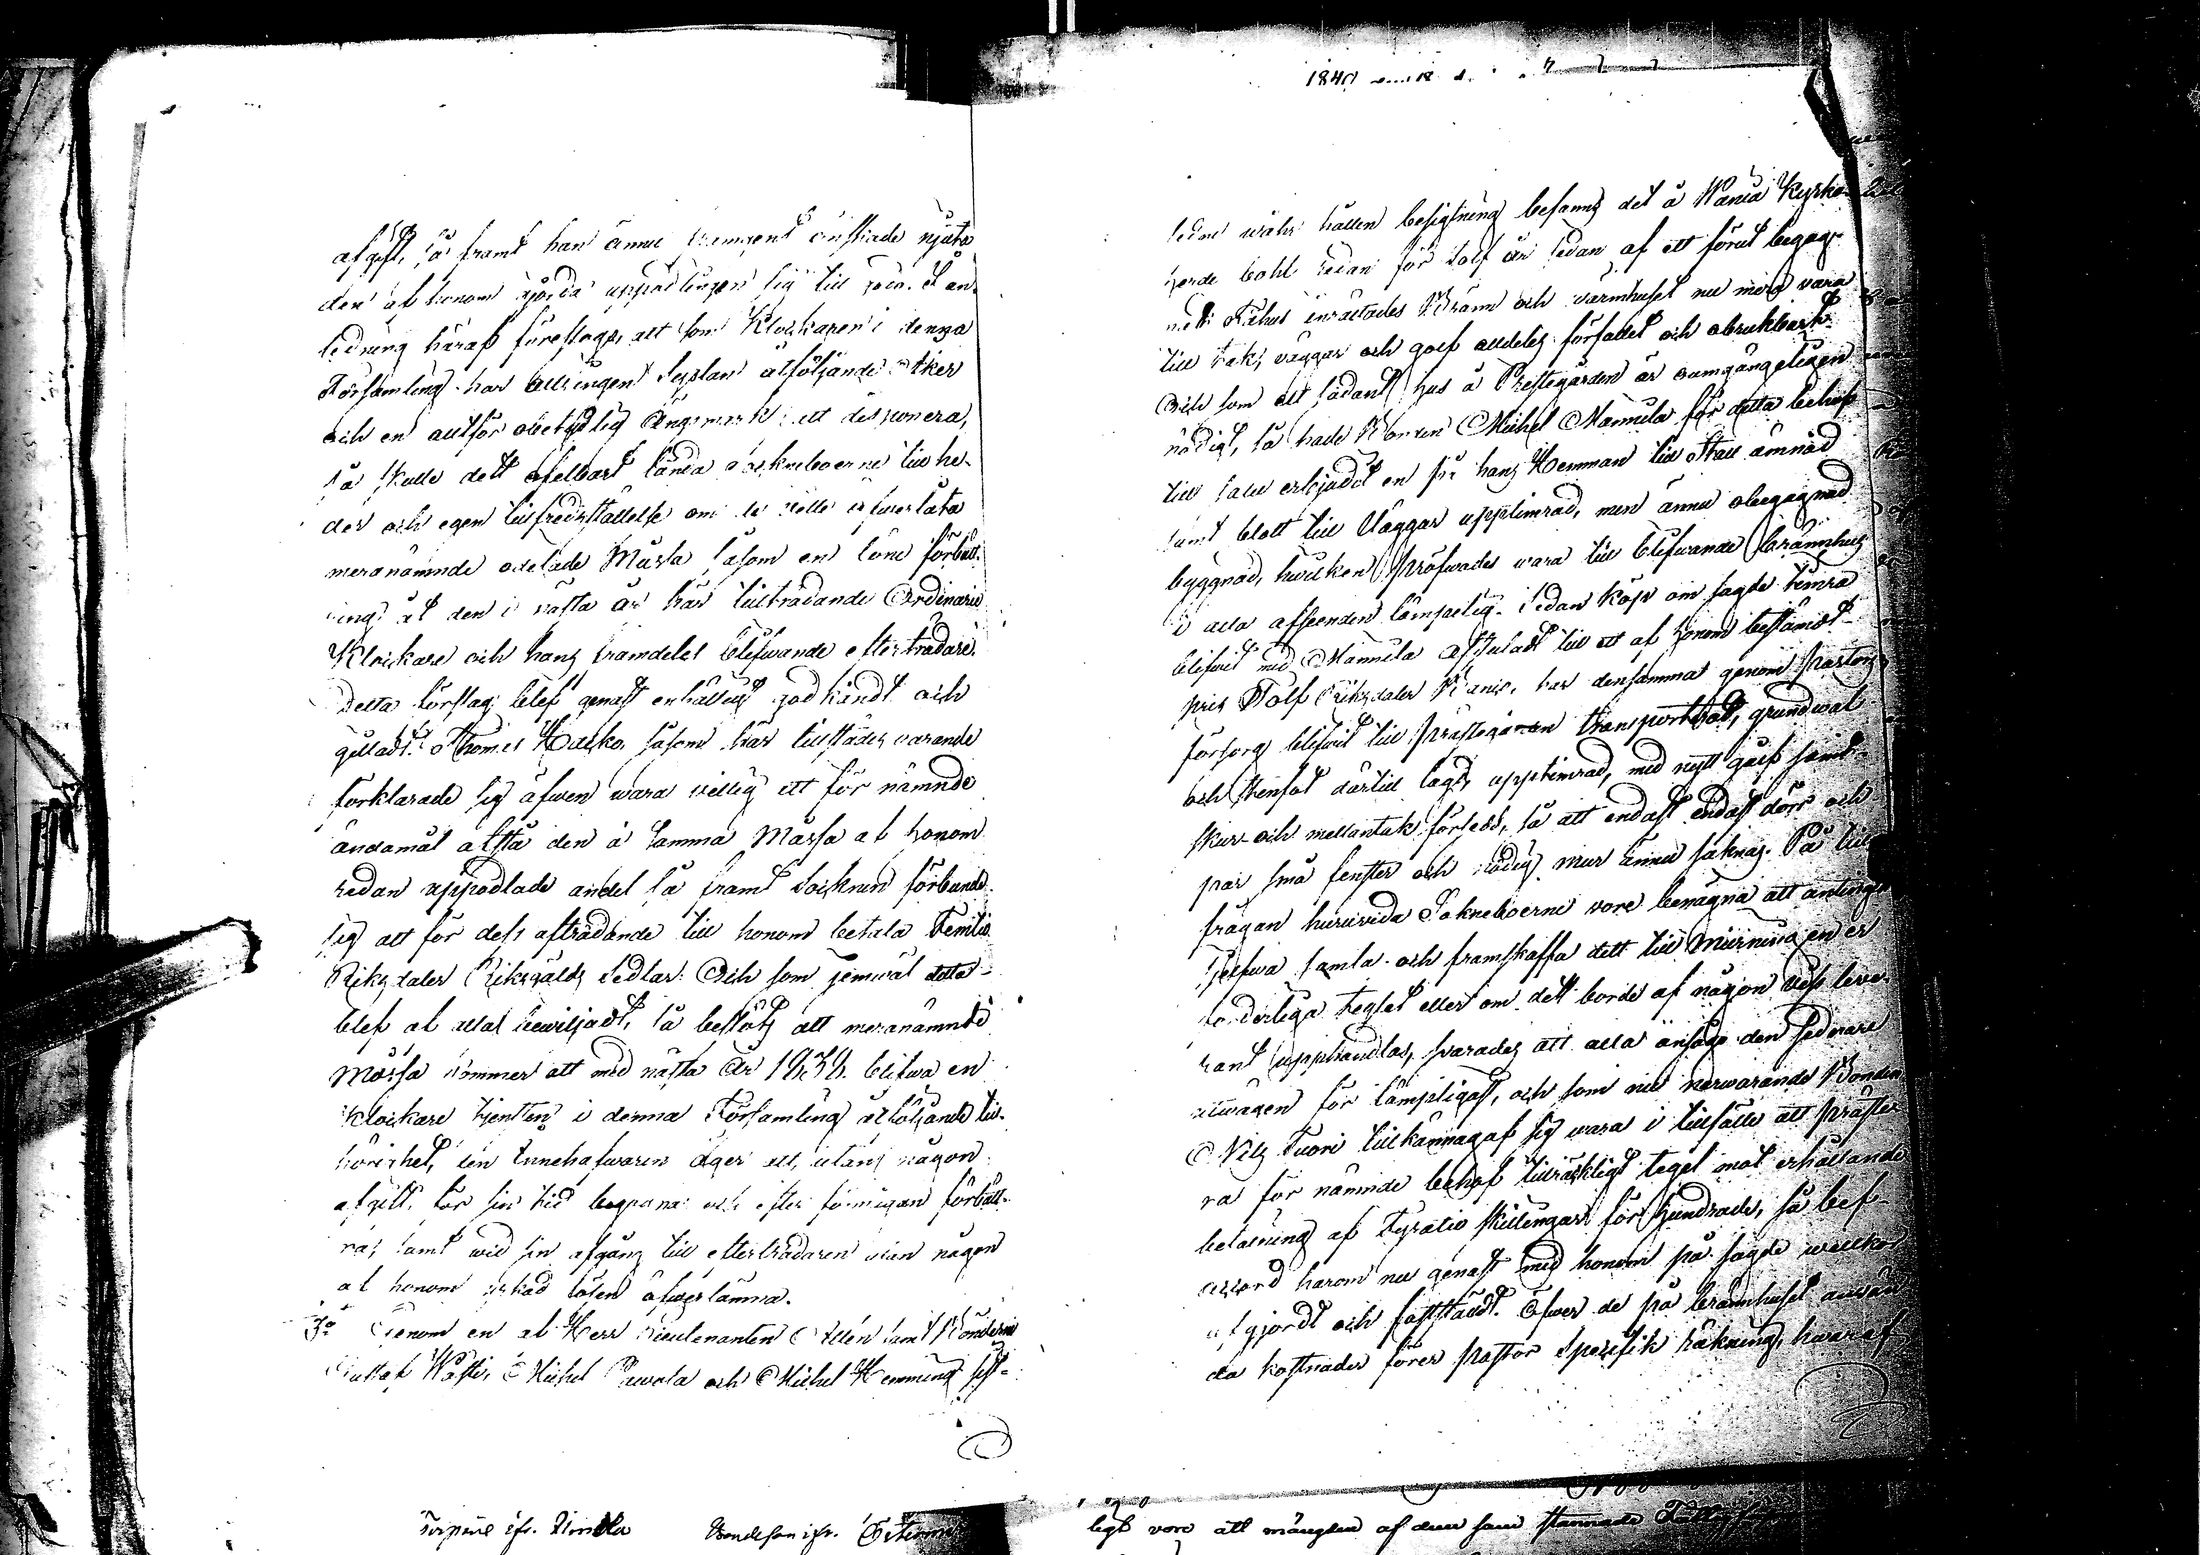 afgift, så framt han ännu framgent önskade njuta
den af honom gjorda uppodlingen sig till godo. I an-
ledning häraf föreslogs, att som Klockaren i denna
Församling har allsingen Sysslan åtföljande Åker
och en alltför obetydlig Ängsmark att disponera,
så skulle dett ofelbart lända Sockneboerne till he-
der och egen tillfredsställelse om de ville öfwerlåta
meranämnde odelade Måssa såsom en löne förbätt-
ring åt den i nästa år här tillträdande Ordinarie
Klockare och hans framdeles blifwande efterträdare.
Detta förslag blef genast enhälligt godkändt och
gilladt. Thomas såsom här tillstädes warande
förklarade sig äfwen wara willig att för nämnde
ändamål afstå den å samma Måssa af honom
redan uppodlade andel så framt Socknen förbunde
sig att för dess afträdande till honom betala Femtio
Riksdaler Riksgälds Sedlar. Och som jemwäl detta
blef af alla bewiljadt, så beslöts att meranämnde
Måssa kommer att med nästa År blifwa en
Klockare tjensten i denna Församling åtföljande till-
hörighet, den Innehafwaren äger att, utan någon
afgift, för sin tid begagna och efter förmågan förbätt-
ra, samt wid sin afgång till efterträdaren utan någon
af honom äskad lösen öfwerlämna.
3o Genom en af Herr Lieutenanten samt Bönderne
Gustaf Michel och Michel Hemming sist-
1840
ledne wåhr hållen besigtning befanns det å Wånå Kyrko-
herde bohl redan för tolf år sedan af ett förut begag-
nadt Fähus inrättades Bränn och wärmhuset nu mera vara
till tak, väggar och golf alldeles förfallet och obrukbart.
Och som ett sådant hus å Prestegården är oumgängeligen
nödigt, så hade Bonden Michel Mannila för detta behof
till salu erbjudit en för hans Hemman till Stall ämnad
samt blott till Väggar upptimrad, men ännu obegagnad
byggnad, hwilken pröfwades wara till blifwande brännhus
i alla afseenden lämpelig. Sedan köp om sagde timra
blifwit med Mannila afslutadt till ett af honom bestämdt
pris Tolf Riksdaler Banco, har densamma genom Pastors
försorg blifwit till Prästegården transporterad, grundwal
och stenfot dartill lagd, upptimrad, med nytt golf samt
skur- och mellantak försedd, så att endast endast dörr och
par små fenster och nödig mur ännu saknas. På till
frågan huruvida Sokneboerne vore benägna att antingen
sjelfwa samla och framskaffa dett till Murningen er-
forderliga teglet eller om dett borde af någon viss leve-
rant upphandlas, svarades att alla ansågo den sednare
utwägen för lämpligast, och som nu närwarande Bonden
Nils Tuori tillkännagaf sig wara i tillfälle att präste-
ra för nämnde behof tillräckligt tegel mot erhållande
betalning af Fyratio skillingar för hundrade, så blef
accord härom nu genast med honom på sagde willkor
afgjordt och fastställt. Öfwer de på brännhuset anwän-
da kostnader förer Pastor Specifik räkning, hwaraf
ligt vore att mängden af dem som stannade